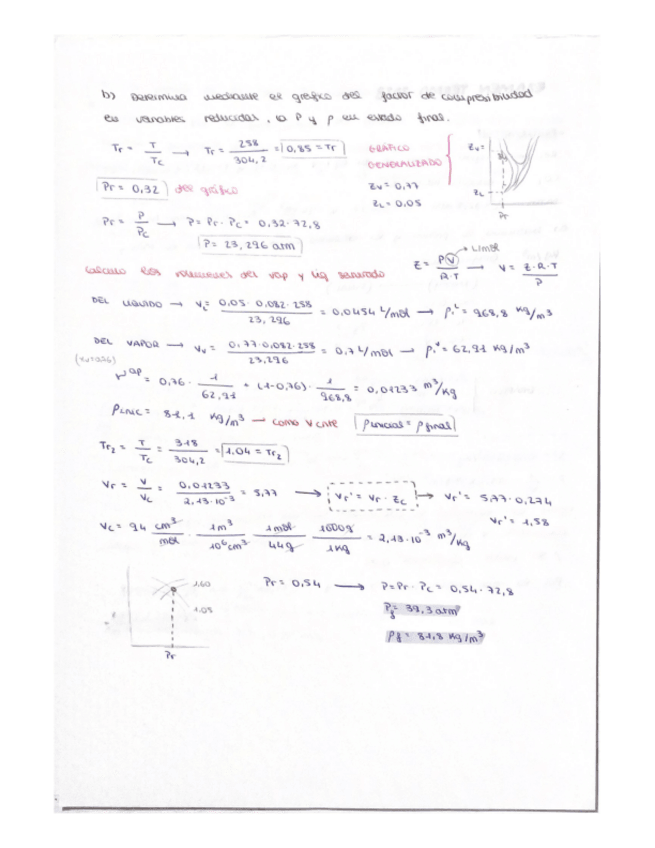 b) Determina mediante el gráfico del factor de compresibilidad
en variables reducidas, la P y ρ en estado final.
Tr = T/Tc → Tr = 258/304,2 = 0,85 = Tr
GRÁFICO GENERALIZADO
Zv = 0,77
ZL = 0,05
Zv=
ZL
Pr
Pr = 0,32 del gráfico
Pr = P/Pc → P = Pr · Pc = 0,32 · 72,8
P = 23,296 atm
L/mol
Calculo los volúmenes del vap y líq saturado
Z = PV/R·T → V = Z·R·T/P
DEL LÍQUIDO → VL = 0,05 · 0,082 · 258/23,296 = 0,0454 L/mol → ρiL = 968,8 kg/m³
DEL VAPOR → Vv = 0,77 · 0,082 · 258/23,296 = 0,7 L/mol → ρiv = 62,91 kg/m³
= 0,76 · 1/62,91 + (1-0,76) · 1/968,8 = 0,01233 m³/kg
= 81,1 kg/m³ → como V cnte ρinicial = ρfinal
Tr2 = T/Tc = 318/304,2 = 1.04 = Tr2
Vr = V/Vc = 0,01233/2,13·10⁻³ = 5,77 → Vr' = Vr · Zc → Vr' = 5,77 · 0,274
Vr' = 1,58
Vc = 94 cm³/mol · 1m³/10⁶cm³ · 1mol/44g · 1000g/1kg = 2,13·10⁻³ m³/kg
1.60
1.05
Pr
Pr = 0,54 → P = Pr · Pc = 0,54 · 72,8
Pf = 39,3 atm
ρf = 81,8 kg/m³